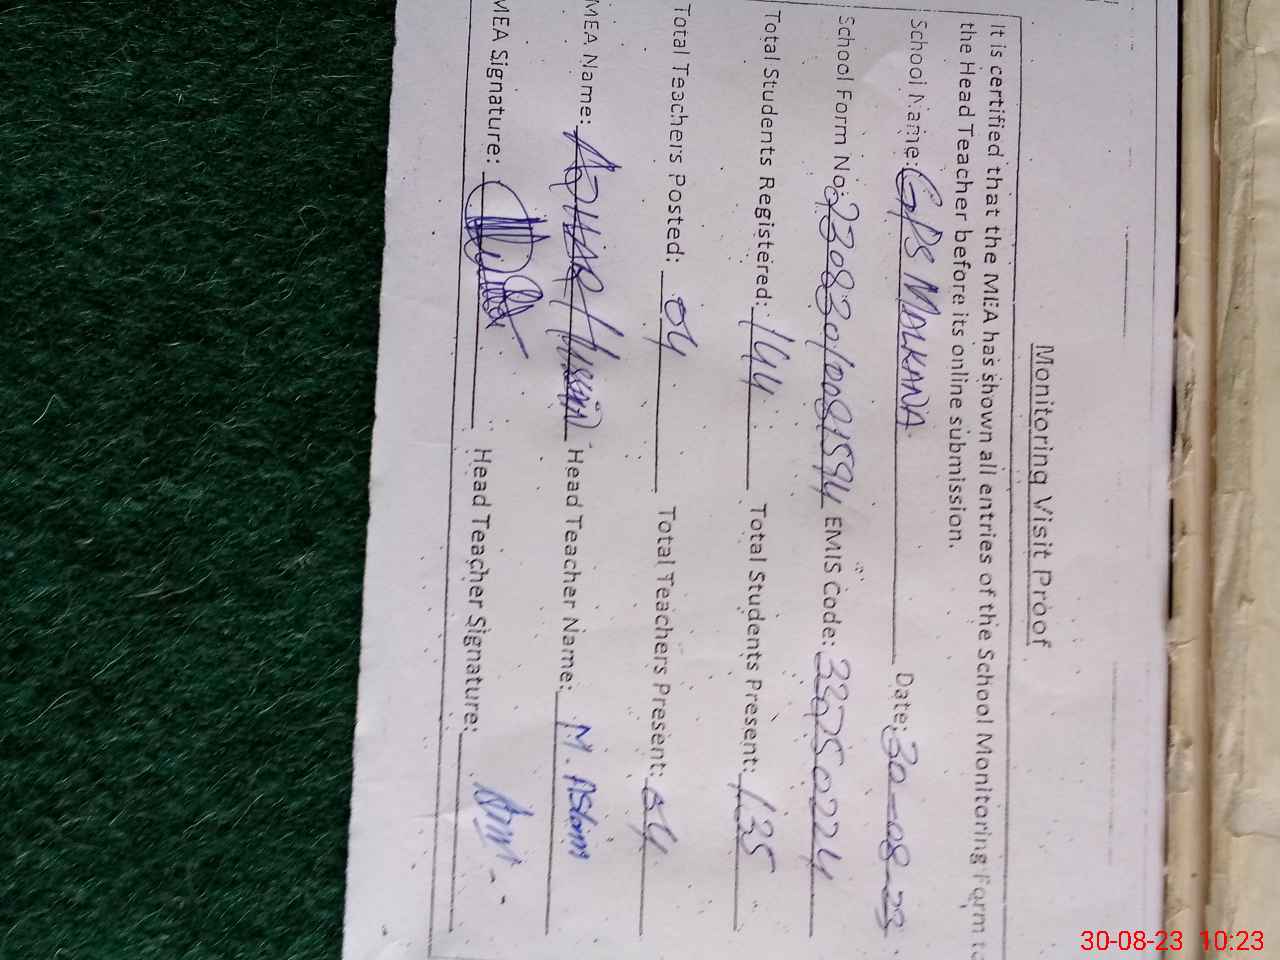 Monitoring Visit Proof
It is certified that the MEA has shown all entries of the School Monitoring Form to
the Head Teacher before its online submission.
School Name: GPS MALKANA Date: 30-08-23
School Form No: 230830/0081594 EMIS Code: 33250224
Total Students Registered: 144 Total Students Present: 135
Total Teachers Posted: 04 Total Teachers Present: 04
MEA Name: AZHAR Hussain Head Teacher Name: M. Aslam
MEA Signature: Head Teacher Signature:
30-08-23 10:23